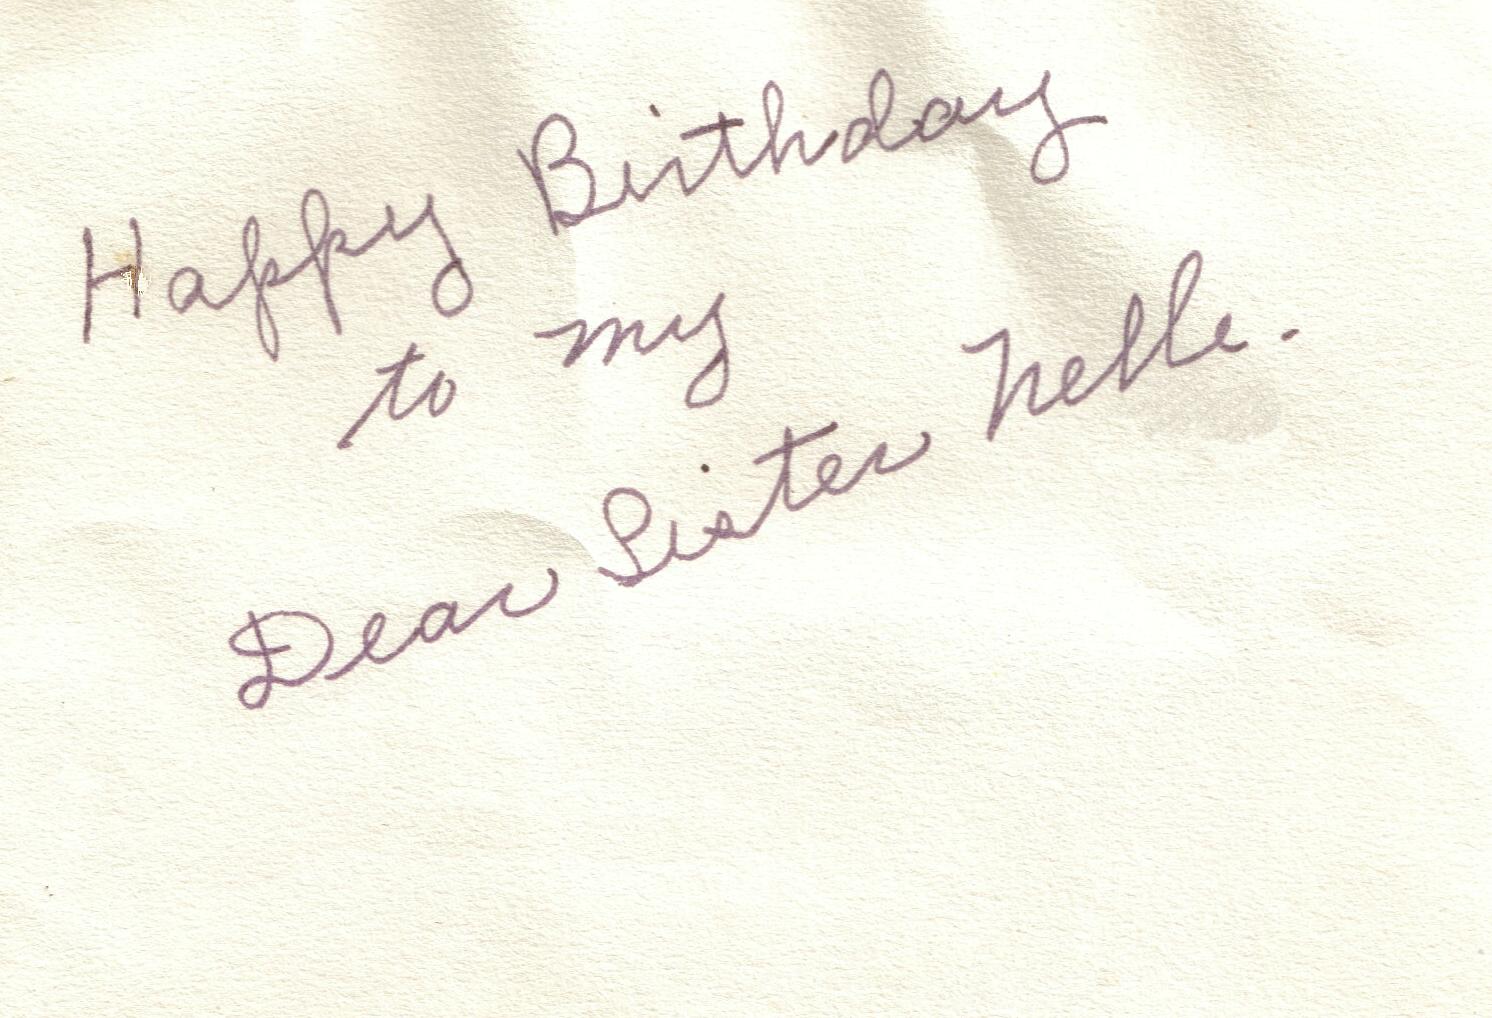 Happy Birthday
to my
Dear Sister Nelle.